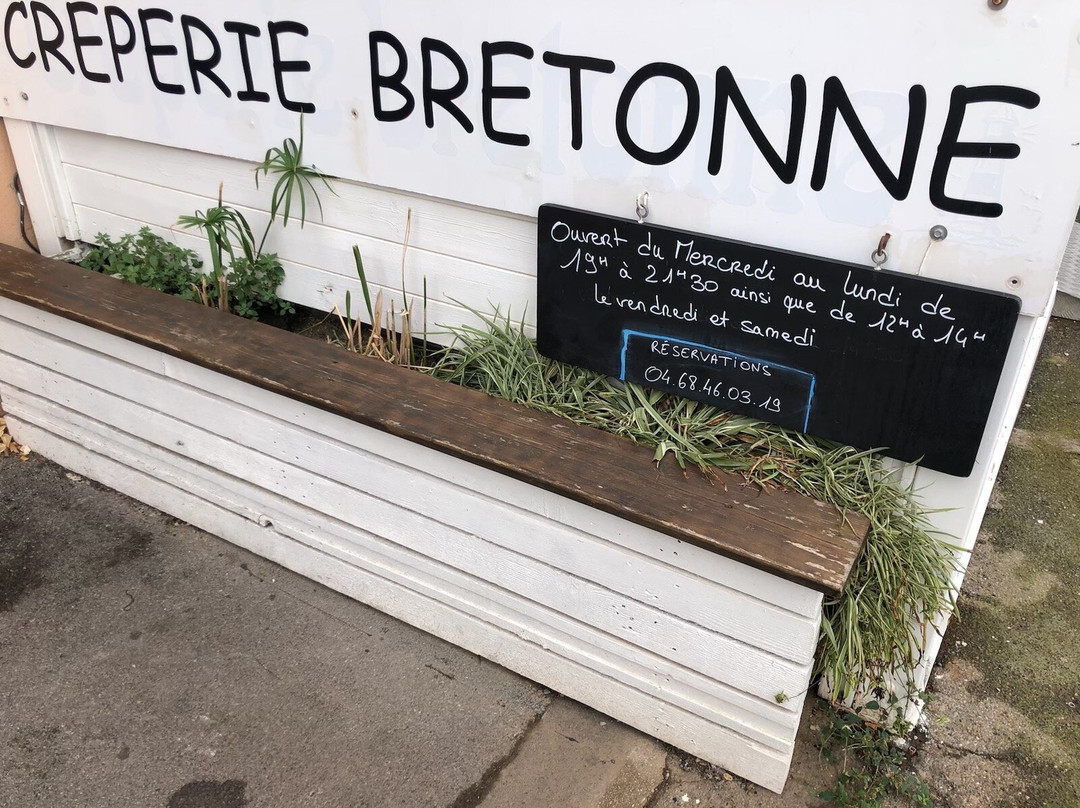 CREPERIE BRETONNE
Ouvert du Mercredi au lundi de
19H à 21H30 ainsi que de 12H à 14H
le vendredi et samedi
RÉSERVATIONS
04.68.46.03.19